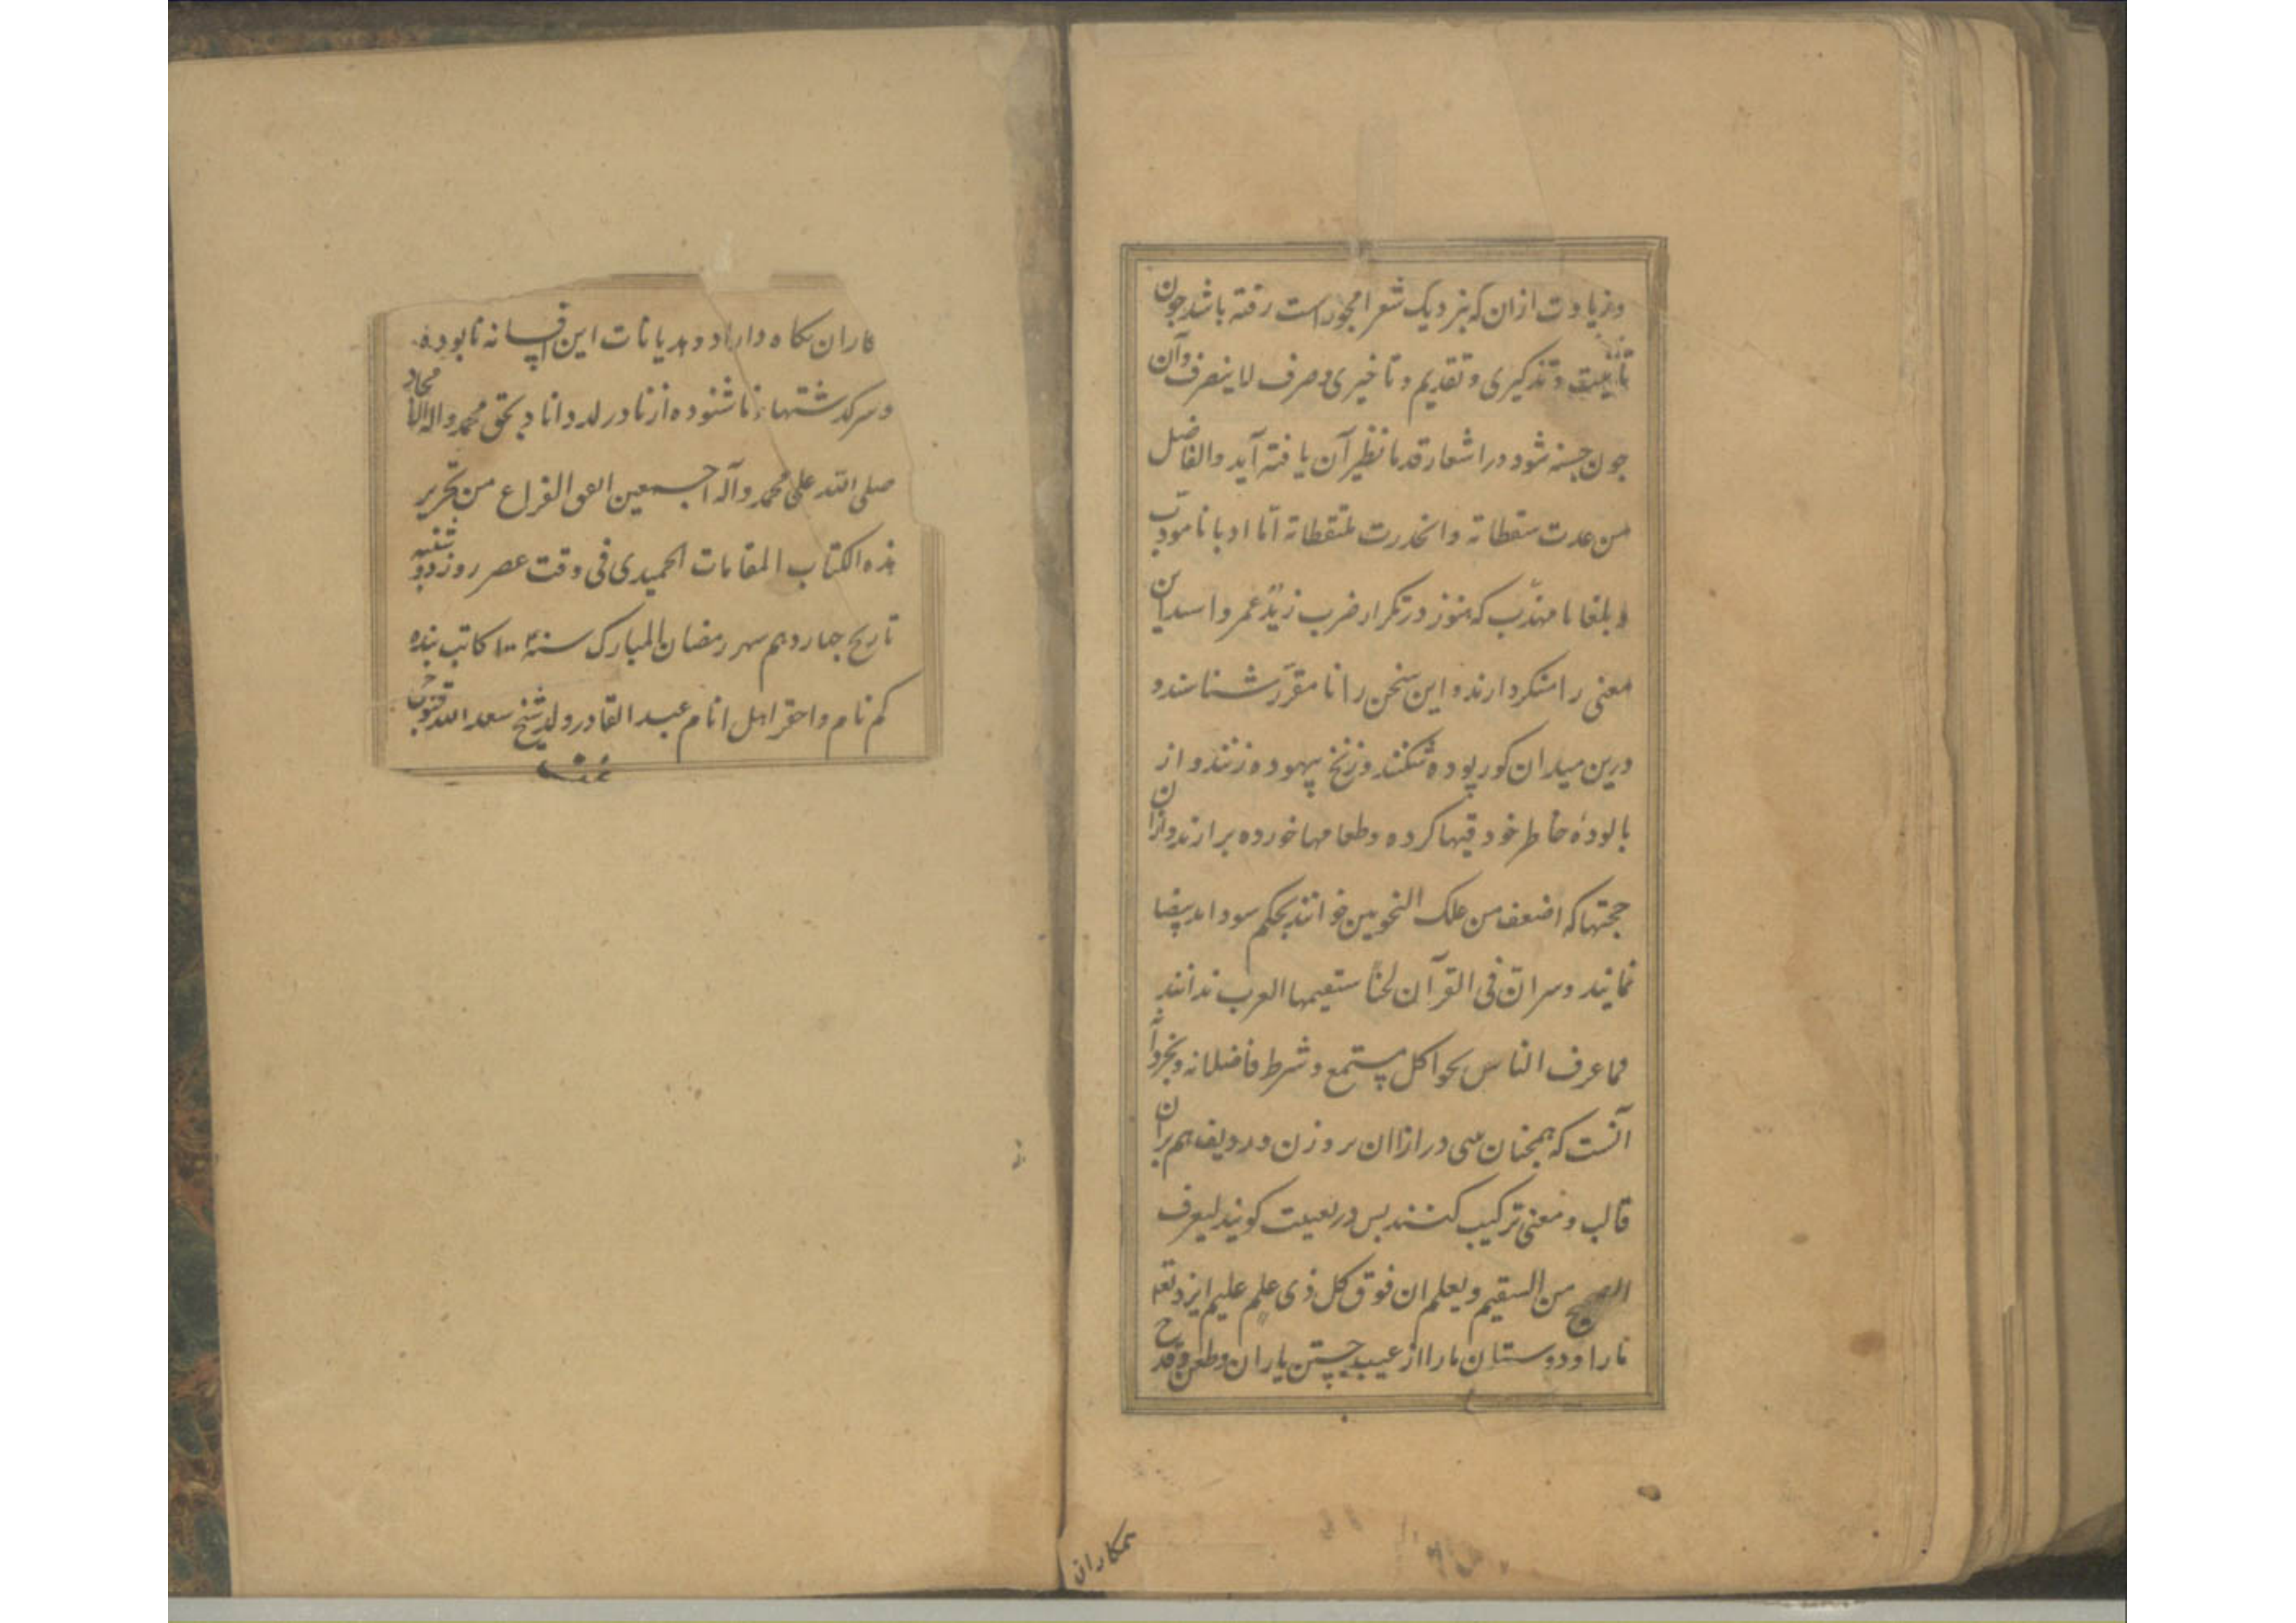 وزیادت ازان که بنزدیک شعرا مجوز است رفته باشد جون
تأنیث وتذکیری وتقدیم وتاخیری وصرف لا ینصرف وآن
جون جسته شود در اشعار قدما نظیر آن یافته آید والفاضل
من عدت سقطاته وانحدرت ملتقطاته اما ادبا نا مودب
و بلغا نا مهذب که هنوز در تکرار ضرب زید عمروا
معنی را منکر دارند و این سخن را نا مقرر شناسند و
درین میدان کور پوده شکنند وزنخ بیهوده زنند و از
بالوده خاطر خود قیها کرده وطعامها خورده برارند وازان
حجتها که اضعف من علک النحویین خوانند بحکم سودا ید بیضا
نمایند وسر ان فی القرآن لحنا ستقیمها العرب ندانند
فما عرف الناس نحوا کل مستمع و شرط فاضلانه
آنست که همچنان سی در ازاان بر وزن وردیف هم بران
قالب و معنی ترکیب کنند بس در بعیبت کویند لیعرف
الصحیح من السقیم ویعلم ان فوق کل ذی علم علیم ایزد تعه
مارا ودوستان مارا از عیب جستن یاران وطعن وقدح
همکاران
کاران نکاه داراد وهدیانات این افسانه نابوده
وسرکذشتهاء ناشنوده از نا در کذراناد بحق محمد واله الامجاد
صلی الله علی محمد وآله اجمعین الفراغ من تحریر
هذه الکتاب المقامات الحمیدی فی وقت عصر روز دوشنبه
تاریخ جهاردهم شهر رمضان المبارک سنه کاتب بنده
کم نام واحقر اهل انام عبد القادر ولد شیخ سعد الله قنوجی